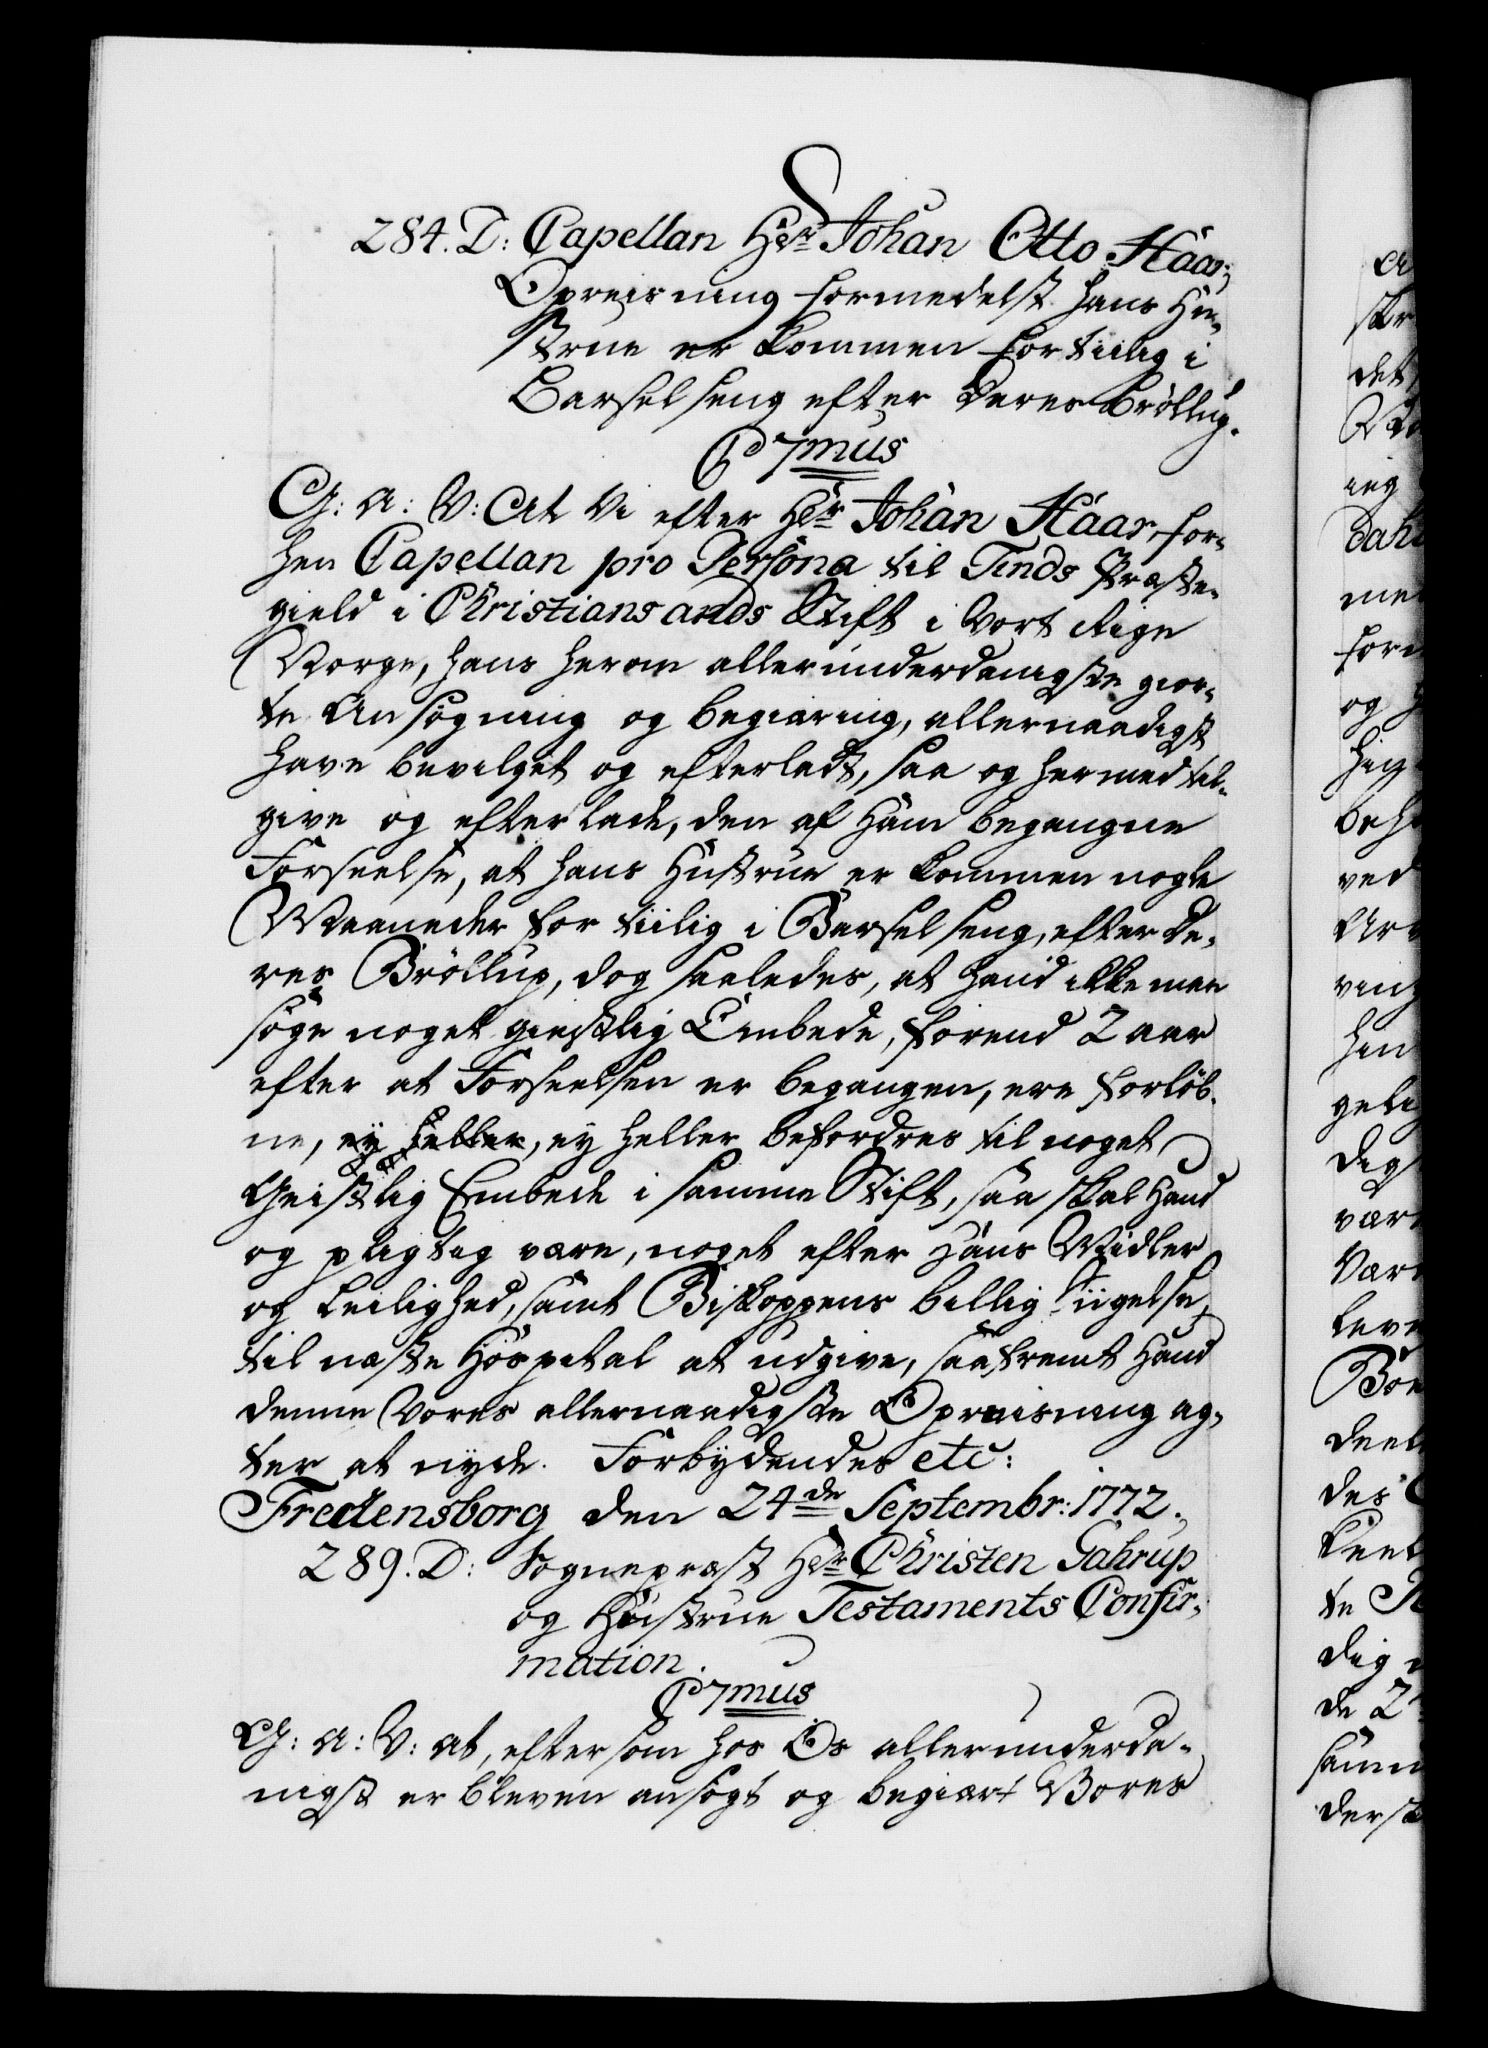 284. D: Capellan Hr: Johan Otto Haar,
Opreisning formedelst hans Hu-
strue er kommen for tiilig i
Barselseng efter deres Bröllup.
C 7mus
G: A: V: At Vi efter Hr: Johan Haar, for-
hen Capellan pro Persona til Tinds Præste-
gield i Christiansands Stift i Vort Rige
Norge, hans herom allerunderdanigste gior-
te Ansögning og begiæring, allernaadigst
have bevilget og efterladt, saa og hermed til-
give og efterlade, den af ham begangne
Forseelse, at hans Hustrue er kommen nogle
Maaneder for tiilig i Barselseng, efter de-
res Bröllup, dog saaledes, at hand ikke maa
söge noget geistlig Embede, forend 2 aar
efter at Forseelsen er begangen, ere forlöb-
ne, ey heller, ey heller befordres til noget
Geistlig Embede i samme Stift, saa skal hand
og pligtig være, noget efter hans Midler
og Leilighed, samt Biskoppens billig Sigelse,
til næste Hospital at udgive, saafremt hand
denne Vores allernaadigste Opreisning ag-
ter at nyde. Forbydendes etc:
Fredensborg den 24de Septembr: 1772.
289. D: Sognepræst Hr: Christen Gahrup
og Hustrue Testaments Confir-
mation.
C 7mus
G: A: V: At, eftersom hos Os allerunderda-
nigst er bleven ansögt og begiært Vores